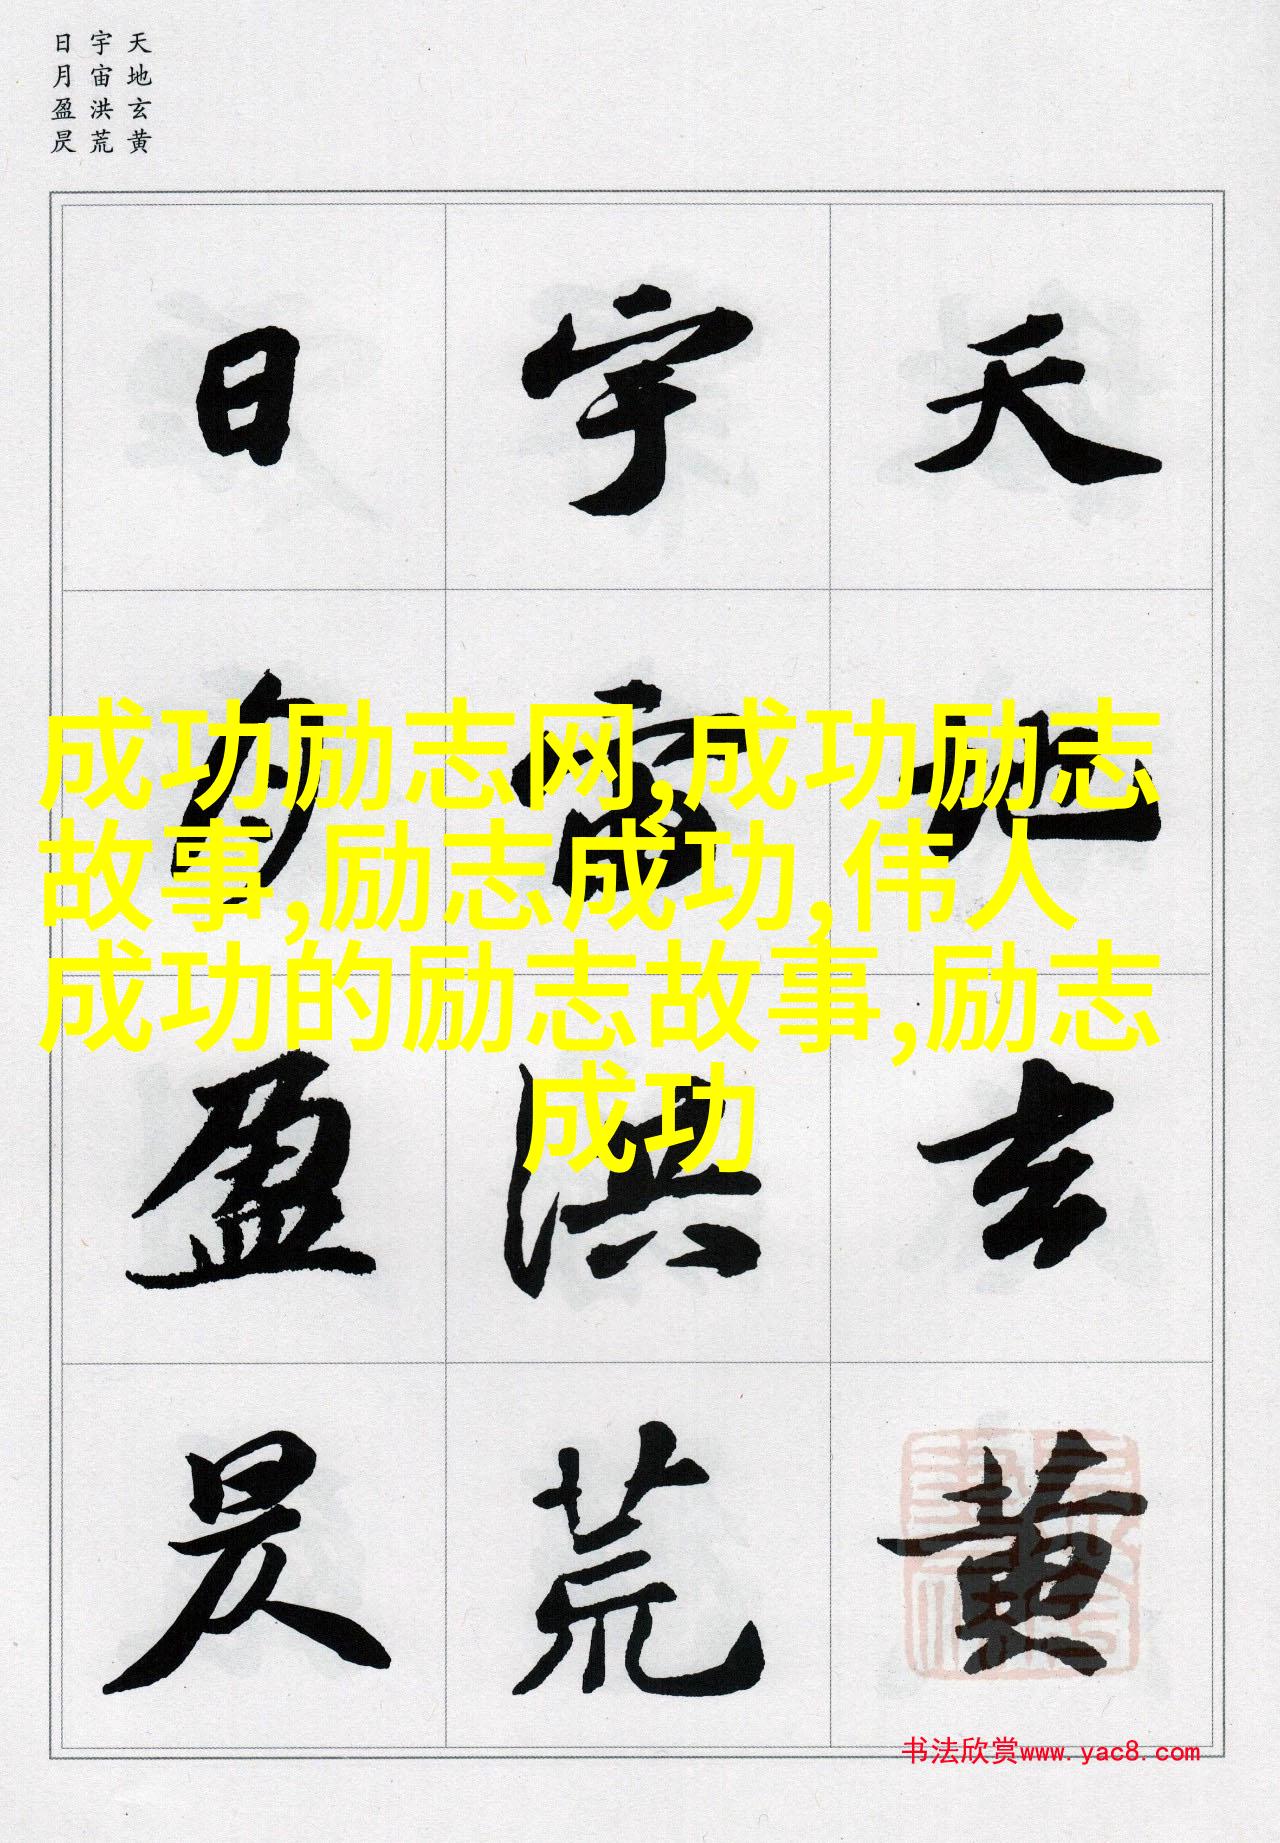 天地玄黄
宇宙洪荒
日月盈昃
天地玄黄
宇宙洪荒
日月盈昃
成功励志网,成功励志
故事,励志成功,伟人
成功的励志故事,励志
成功
书法欣赏www.yac8.com